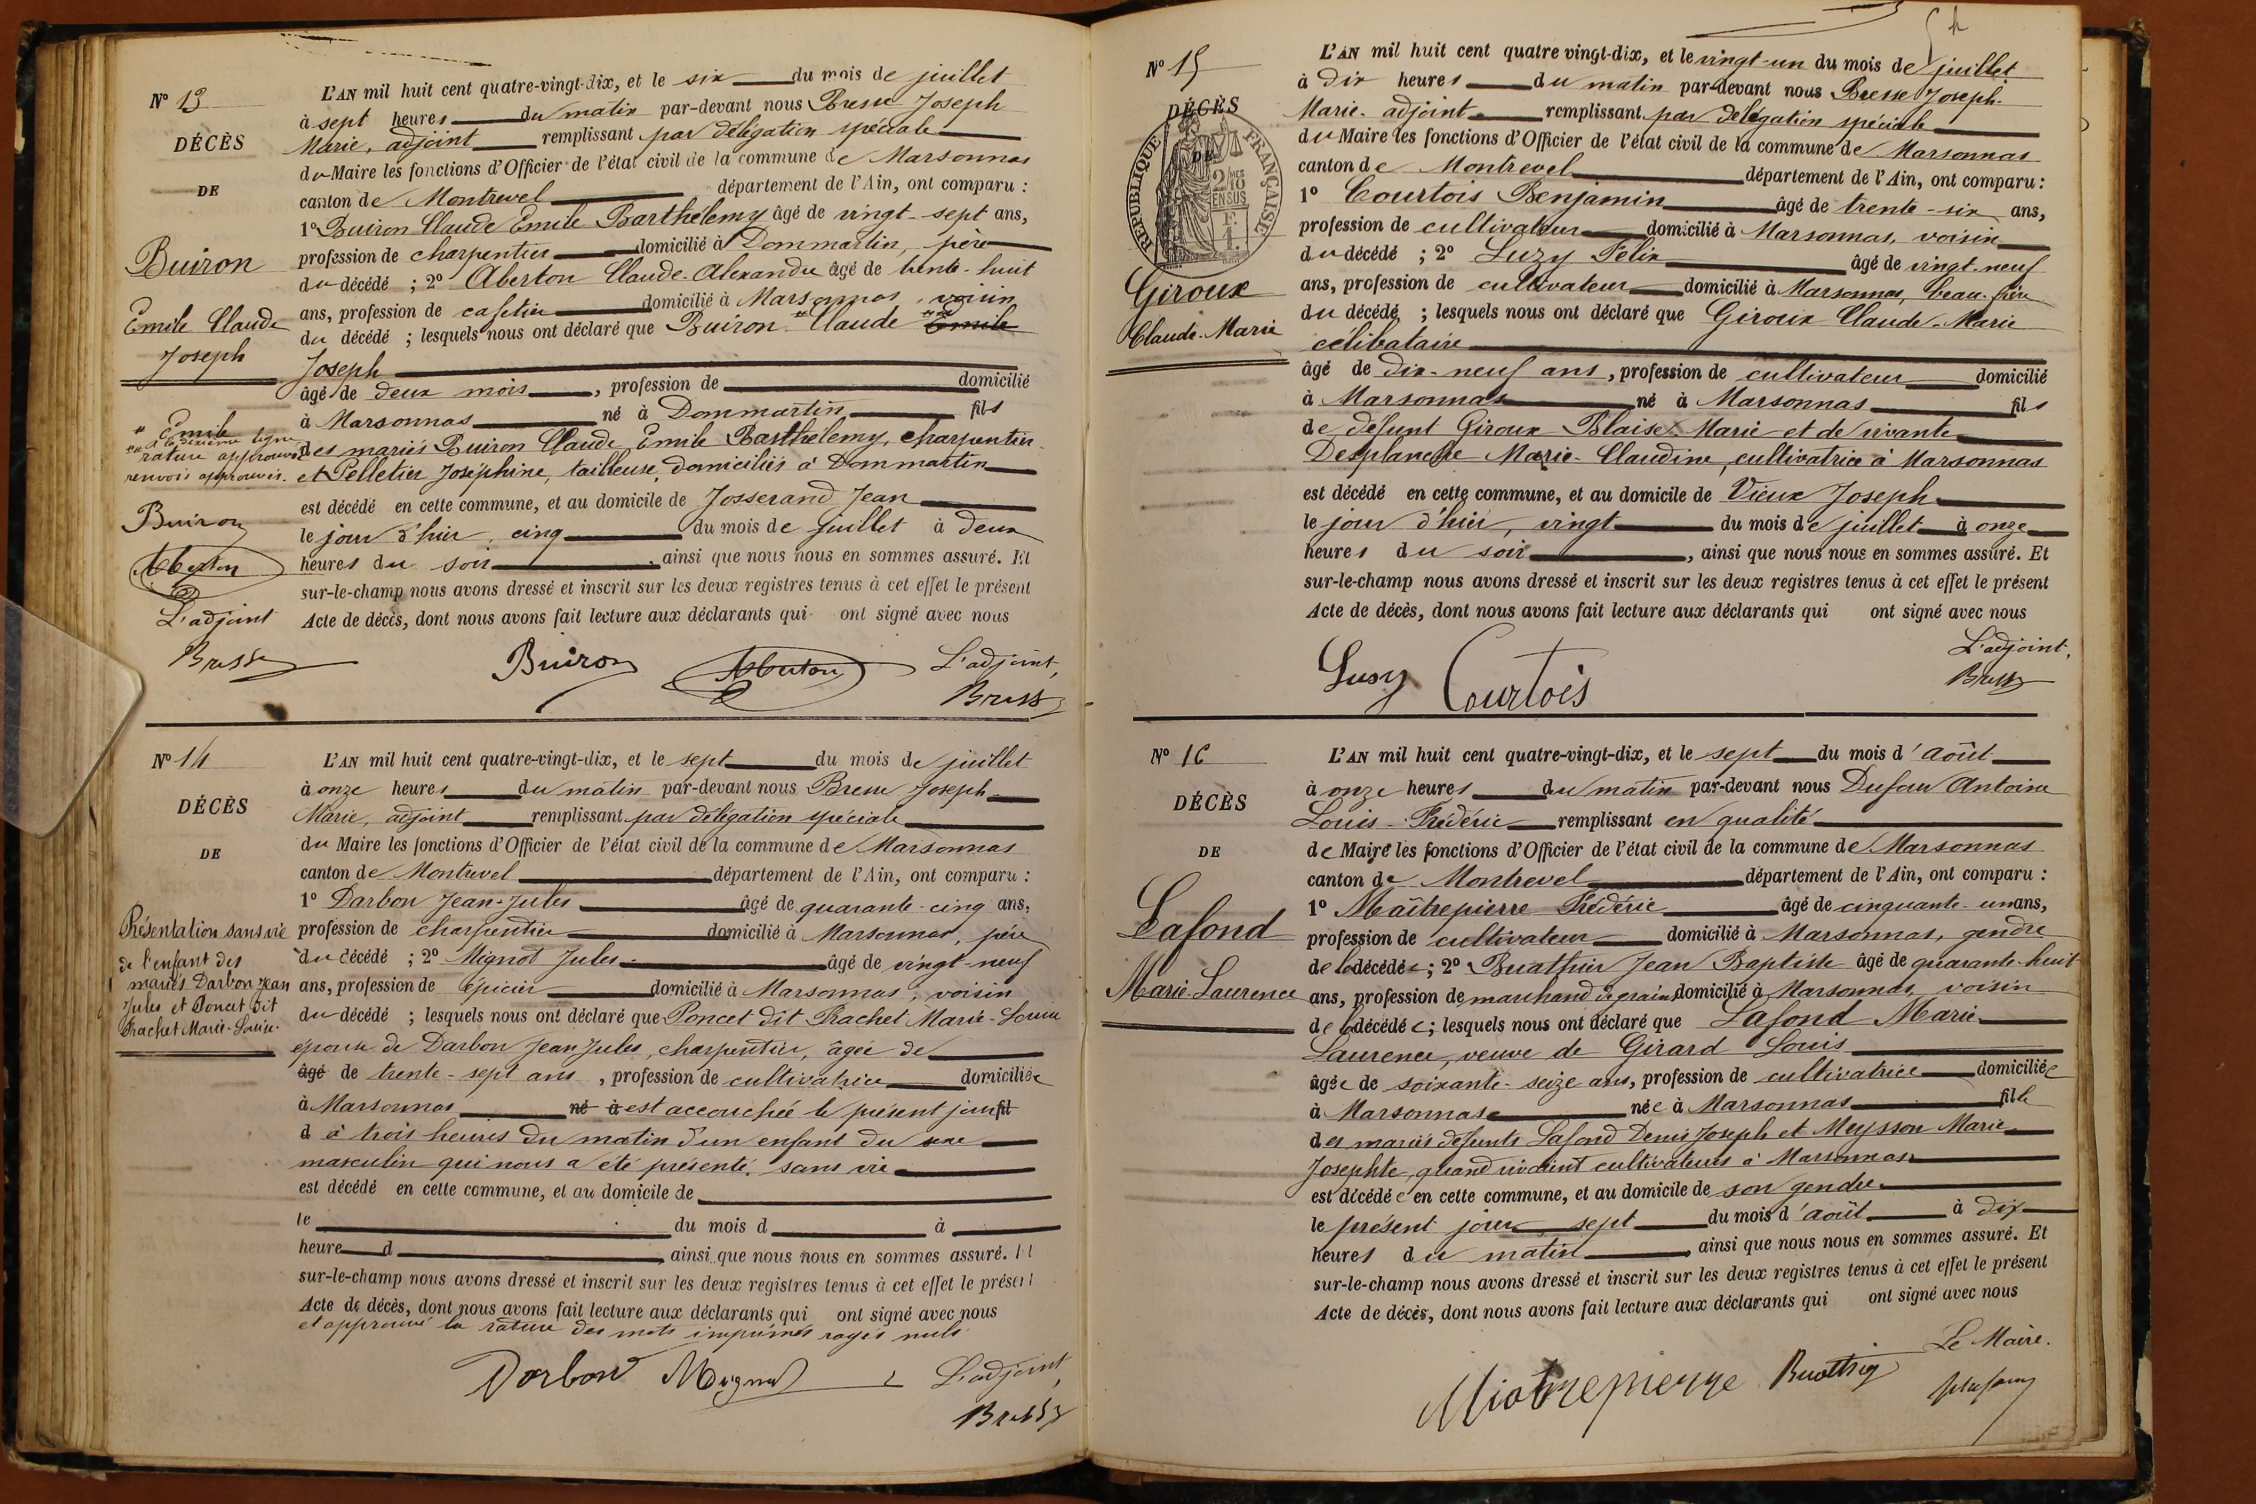 N° 13
DÉCÈS
DE
Buiron
Emile Claude
Joseph
* Emile
** dixième ligne
rature approuvée
renvois approuvés.
Buiron
Aberton
L'adjoint
Bresse
L'AN mil huit cent quatre-vingt-dix, et le six du mois de juillet
à sept heures du matin par-devant nous Bresse Joseph
Marie, adjoint remplissant par délégation spéciale
du Maire les fonctions d'Officier de l'état civil de la commune de Marsonnas
canton de Montrevel département de l'Ain, ont comparu :
1° Buiron Claude Emile Barthélemy âgé de vingt-sept ans,
profession de charpentier domicilié à Dommartin, père
du décédé ; 2° Aberton Claude-Alexandre âgé de trente-huit
ans, profession de cafetier domicilié à Marsonnas, voisin
du décédé ; lesquels nous ont déclaré que Buiron * Claude ** Emile
Joseph
âgé de deux mois, profession de domicilié
à Marsonnas né à Dommartin fils
des mariés Buiron Claude Emile Barthélemy, charpentier
et Pelletier Joséphine, tailleuse, domiciliés à Dommartin
est décédé en cette commune, et au domicile de Josserand Jean
le jour d'hier, cinq du mois de juillet à deux
heures du soir, ainsi que nous nous en sommes assuré. Et
sur-le-champ nous avons dressé et inscrit sur les deux registres tenus à cet effet le présent
Acte de décès, dont nous avons fait lecture aux déclarants qui ont signé avec nous
Buiron Aberton L'adjoint,
Bresse
N° 14
DÉCÈS
DE
Présentation sans vie
de l'enfant des
mariés Darbon Jean
Jules et Poncet dit
Rachet Marie-Louise.
L'AN mil huit cent quatre-vingt-dix, et le sept du mois de juillet
à onze heures du matin par-devant nous Bresse Joseph
Marie, adjoint remplissant par délégation spéciale
du Maire les fonctions d'Officier de l'état civil de la commune de Marsonnas
canton de Montrevel département de l'Ain, ont comparu :
1° Darbon Jean-Jules âgé de quarante-cinq ans,
profession de charpentier domicilié à Marsonnas, père
du décédé ; 2° Mignot Jules âgé de vingt-neuf
ans, profession de épicier domicilié à Marsonnas, voisin
du décédé ; lesquels nous ont déclaré que Poncet dit Rachet Marie-Louise
épouse de Darbon Jean Jules, charpentier, âgée de
âgé de trente-sept ans, profession de cultivatrice domiciliée
à Marsonnas né à est accouchée le présent jour fil
d à trois heures du matin d'un enfant du sexe
masculin qui nous a été présenté sans vie
est décédé en cette commune, et au domicile de
le du mois d à
heure d ainsi que nous nous en sommes assuré. Et
sur-le-champ nous avons dressé et inscrit sur les deux registres tenus à cet effet le présent
Acte de décès, dont nous avons fait lecture aux déclarants qui ont signé avec nous
et approuvé la rature des mots imprimés rayés nuls
Darbon Mignot L'adjoint,
Bresse
N° 15
DÉCÈS
DE
RÉPUBLIQUE FRANÇAISE
2/10 EN SUS
Giroux
Claude-Marie
L'AN mil huit cent quatre vingt-dix, et le vingt-un du mois de juillet
à dix heures du matin par-devant nous Bresse Joseph-
Marie. adjoint remplissant par délégation spéciale
du Maire les fonctions d'Officier de l'état civil de la commune de Marsonnas
canton de Montrevel département de l'Ain, ont comparu :
1° Courtois Benjamin âgé de trente-six ans,
profession de cultivateur domicilié à Marsonnas, voisin
du décédé ; 2° Luzy Félix âgé de vingt-neuf
ans, profession de cultivateur domicilié à Marsonnas, beau-frère
du décédé ; lesquels nous ont déclaré que Giroux Claude-Marie
célibataire
âgé de dix-neuf ans, profession de cultivateur domicilié
à Marsonnas né à Marsonnas fils
de défunt Giroux Blaise-Marie et de vivante
Desplanche Marie-Claudine, cultivatrice à Marsonnas
est décédé en cette commune, et au domicile de Vieux Joseph
le jour d'hier, vingt du mois de juillet à onze
heures du soir, ainsi que nous nous en sommes assuré. Et
sur-le-champ nous avons dressé et inscrit sur les deux registres tenus à cet effet le présent
Acte de décès, dont nous avons fait lecture aux déclarants qui ont signé avec nous
Lusy Courtois L'adjoint,
Bresse
N° 16
DÉCÈS
DE
Lafond
Marie-Laurence
L'AN mil huit cent quatre-vingt-dix, et le sept du mois d'août
à onze heures du matin par-devant nous Dufour Antoine
Louis-Frédéric remplissant en qualité
de Maire les fonctions d'Officier de l'état civil de la commune de Marsonnas
canton de Montrevel département de l'Ain, ont comparu :
1° Maîtrepierre Frédéric âgé de cinquante-un ans,
profession de cultivateur domicilié à Marsonnas, gendre
de la décédée ; 2° Buathier Jean Baptiste âgé de quarante-huit
ans, profession de marchand de grains domicilié à Marsonnas, voisin
de la décédée ; lesquels nous ont déclaré que Lafond Marie
Laurence, veuve de Girard Louis
âgée de soixante-seize ans, profession de cultivatrice domiciliée
à Marsonnas née à Marsonnas fille
des mariés défunts Lafond Denis Joseph et Meysson Marie
Josephte, quand vivaient cultivateurs à Marsonnas
est décédée en cette commune, et au domicile de son gendre
le présent jour sept du mois d'août à dix
heures du matin, ainsi que nous nous en sommes assuré. Et
sur-le-champ nous avons dressé et inscrit sur les deux registres tenus à cet effet le présent
Acte de décès, dont nous avons fait lecture aux déclarants qui ont signé avec nous
Le Maire.
Miatrepierre Buathier